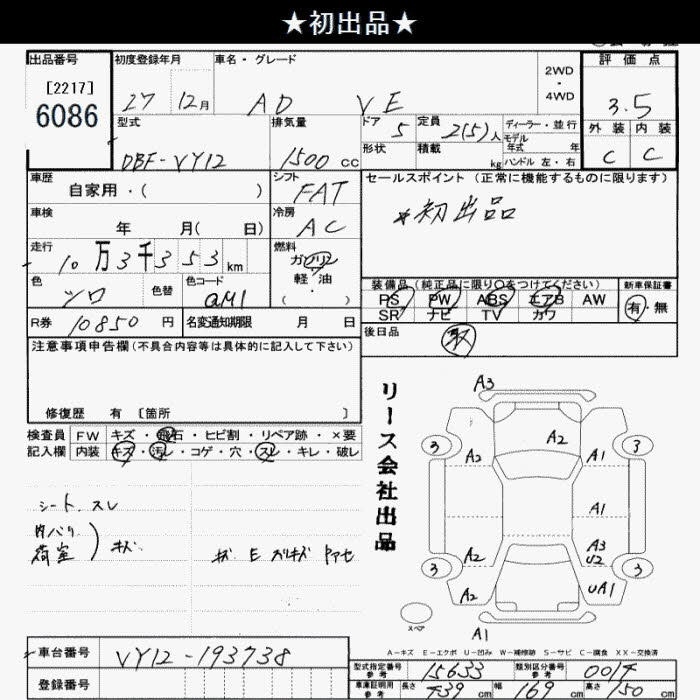 ★初出品★
出品番号
[2217]
6086
初度登録年月
27 12月
車名・グレード
AD VE
2WD
・
4WD
評価点
3.5
外装 内装
C C
型式
DBF-VY12
排気量
1500 cc
ドア 5
形状
定員 2(5)人
積載 kg
ディーラー・並行
モデル年式 年
ハンドル 左・右
車歴
自家用・( )
シフト
FAT
セールスポイント(正常に機能するものに限ります)
*初出品
車検
年 月( 日)
冷房
AC
走行
10万3千353km
燃料
ガソリン
軽・油
( )
色
シロ
色替
色コード
QM1
装備品(純正品に限り○をつけてください)
PS PW ABS エアB AW
SR ナビ TV カワ
新車保証書
有・無
R券 10850円
名変通知期限 月 日
後日品
取
注意事項申告欄(不具合内容等は具体的に記入して下さい)
修復歴 有 〔箇所 〕
検査員
記入欄
FW キズ・飛石・ヒビ割・リペア跡・×要
内装 キズ・汚レ・コゲ・穴・スレ・キレ・破レ
シート、スレ
内バリ
荷室
)キズ
キズ E スリキズ
リース会社出品
A3
3 A2 A2 A1 3
A1
A3
U2
3 A2 3
A2 UA1
スペア
A1
A-キズ E-エクボ U-凹み W-補修跡 S-サビ C-腐食 XX-交換済
車台番号
VY12-193738
登録番号
型式指定番号
参考
15633
類別区分番号
参考
0014
車庫証明用
参考
長さ 439 cm 幅 169 cm 高さ 150 cm